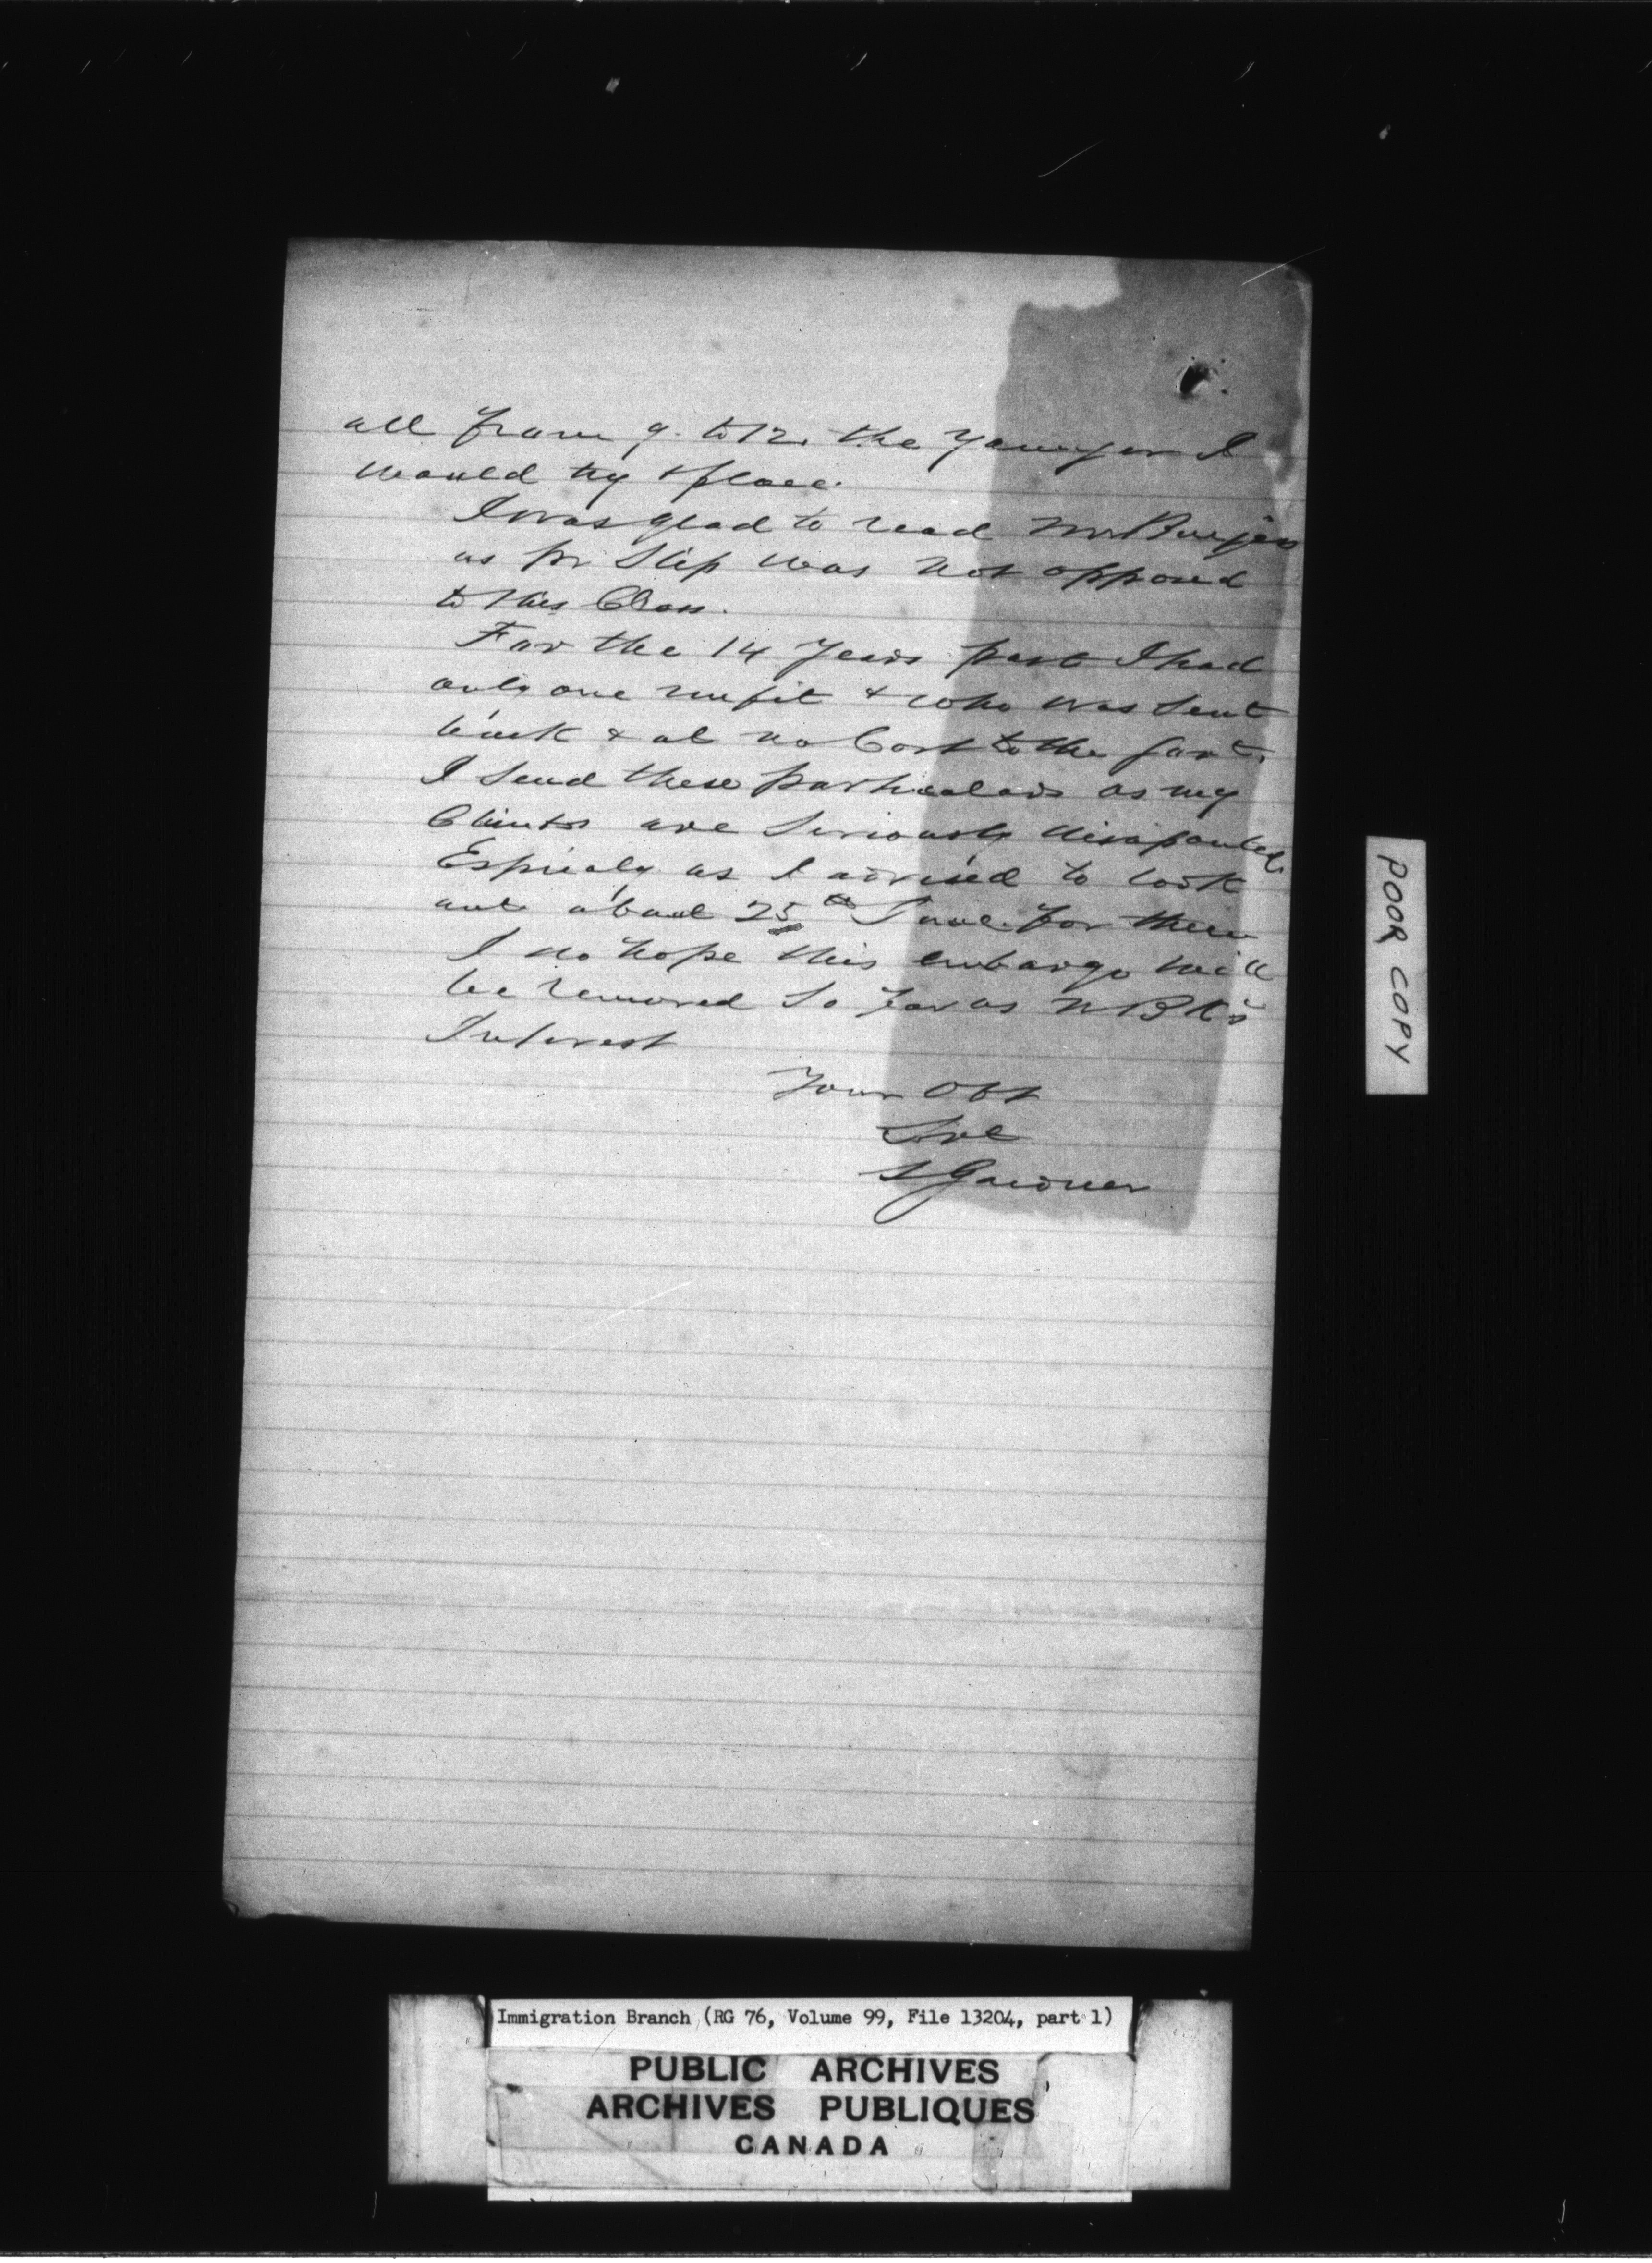 all from 9. to 12. the younger I
would try & place.
I was glad to read Mr Burgess
as pr Slip was not opposed
to this Class.
For the 14 Years past I had
only one unfit & who was sent
back & at no Cost to the Govt.
I send these particulars as my
Clients are seriously disapointed
Espicaly as I advised to look
out about 25th June for them
I do hope this embargo will
be removed so far as NBk's
Interest
Your Obt
Svt
S Gardner
POOR COPY
Immigration Branch (RG 76, Volume 99, File 13204, part 1)
PUBLIC ARCHIVES
ARCHIVES PUBLIQUES
CANADA